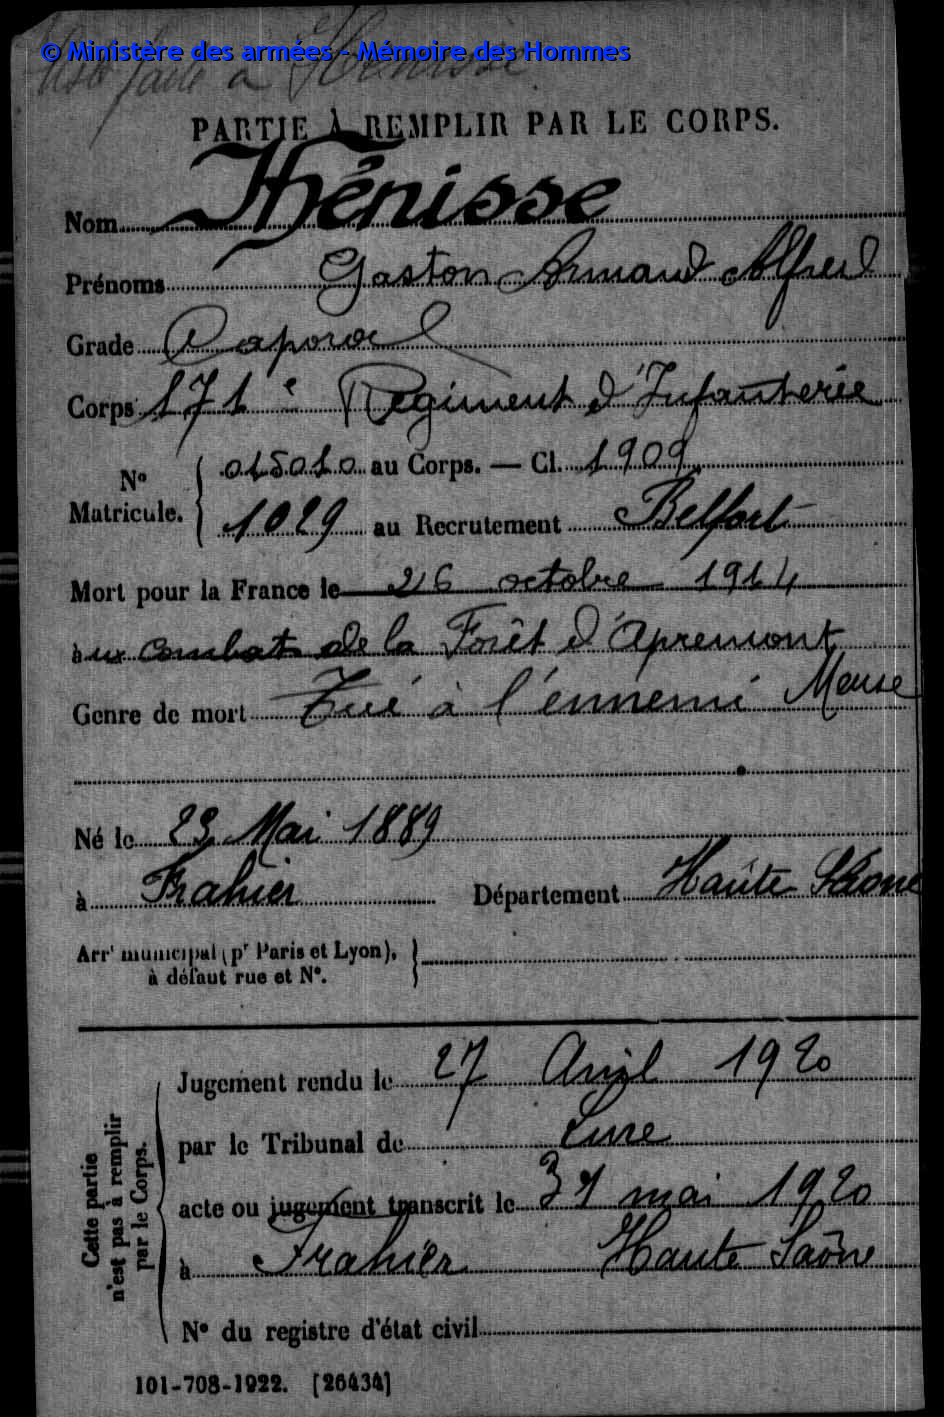 © Ministère des armées - Mémoire des Hommes
faite à Hénisse
PARTIE À REMPLIR PAR LE CORPS.
Nom Hénisse
Prénoms Gaston Armand Alfred
Grade Caporal
Corps 171e Régiment d'Infanterie
No Matricule. { 015010 au Corps. — Cl. 1909
1029 au Recrutement Belfort
Mort pour la France le 26 octobre 1914
aux combats de la Forêt d'Apremont
Genre de mort Tué à l'ennemi Meuse
Né le 23 Mai 1889
à Frahier Département Haute Saône
Arrt municipal (pr Paris et Lyon), }
à défaut rue et No.
Cette partie
n'est pas à remplir
par le Corps.
Jugement rendu le 27 Avril 1920
par le Tribunal de Lure
acte ou jugement transcrit le 31 mai 1920
à Frahier Haute Saône
No du registre d'état civil
101-708-1922. [26434]